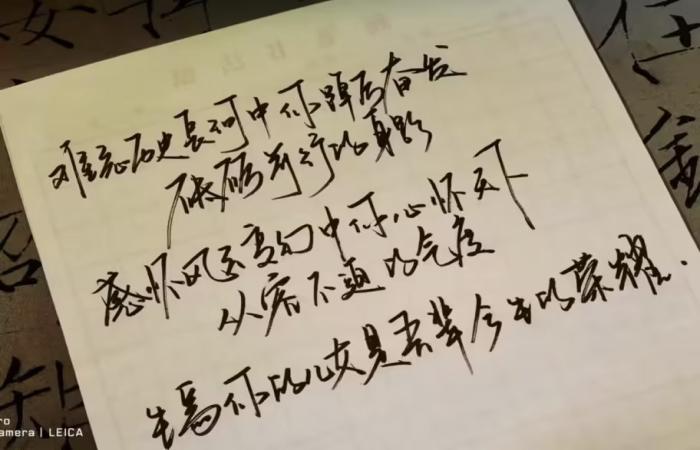 难忘历史长河中你踔厉奋发
砥砺前行的身影
感怀风云变幻中你心怀天下
从容不迫的气度
生为你的儿女是吾辈今生的荣耀.
ro
amera | LEICA